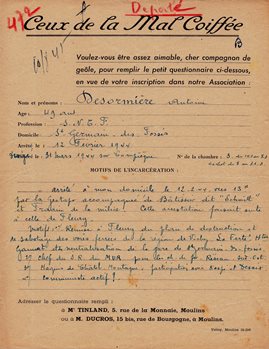 Déporté
472
Ceux de la Mal Coiffée
B
Voulez-vous être assez aimable, cher compagnon de
geôle, pour remplir le petit questionnaire ci-dessous,
en vue de votre inscription dans notre Association :
Nom et prénoms : Desormière Antoine
Age : 49 ans
Profession : S.N.C.F.
Domicile : St Germain des Fossés
Arrêté le : 12 Février 1944
31 Mars 1944 sur Compiègne N° de la chambre : 3
MOTIFS DE L'INCARCÉRATION :
arrêté à mon domicile le 12.2.44 vers 13h
par la Gestapo accompagnée de Batissier dit "Schmitt"
et de la milice. Cette arrestation faisant suite
à celle de Fleury.
Motif: Remise à Fleury du plan de destruction et
de sabotage des voies ferrées sur la région de Vichy. La Ferté Hte
de la gare de St Germain des fossés
Chef du S.R. du M.U.R. Résistance
communiste actif!
Adresser le questionnaire rempli :
à Mr TINLAND, 5, rue de la Monnaie, Moulins
ou à M. DUCROS, 15 bis, rue de Bourgogne, à Moulins.